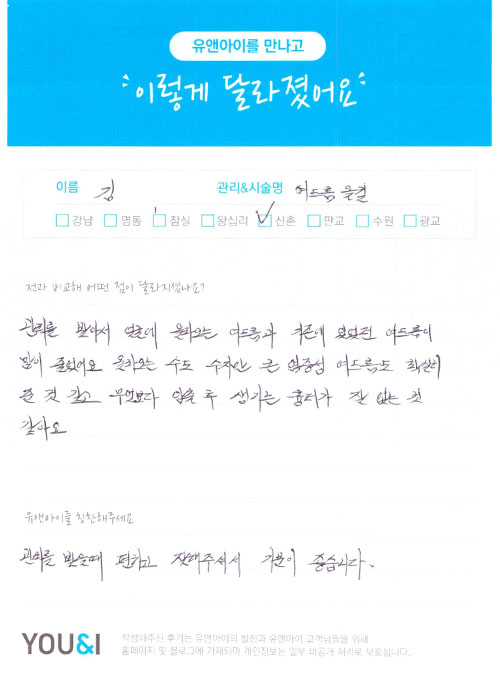 유앤아이를 만나고
이렇게 달라졌어요
이름 김 관리&시술명 여드름 물결
강남 명동 잠실 왕십리 신촌 판교 수원 광교
전과 비교해 어떤 점이 달라지셨나요?
관리를 받아서 얼굴에 올라오는 여드름과 기존에 있었던 여드름이
많이 줄었어요 올라오는 수도 수지만 큰 염증성 여드름도 확실히
준 것 같고 무엇보다 압출 후 생기는 흉터가 잘 없는 것
같아요
유앤아이를 칭찬해주세요
관리를 받을때 편하고 잘해주셔서 기분이 좋습니다.
YOU&I
작성해주신 후기는 유앤아이의 발전과 유앤아이 고객님들을 위해
홈페이지 및 블로그에 기재되며 개인정보는 일부 비공개 처리로 보호됩니다.